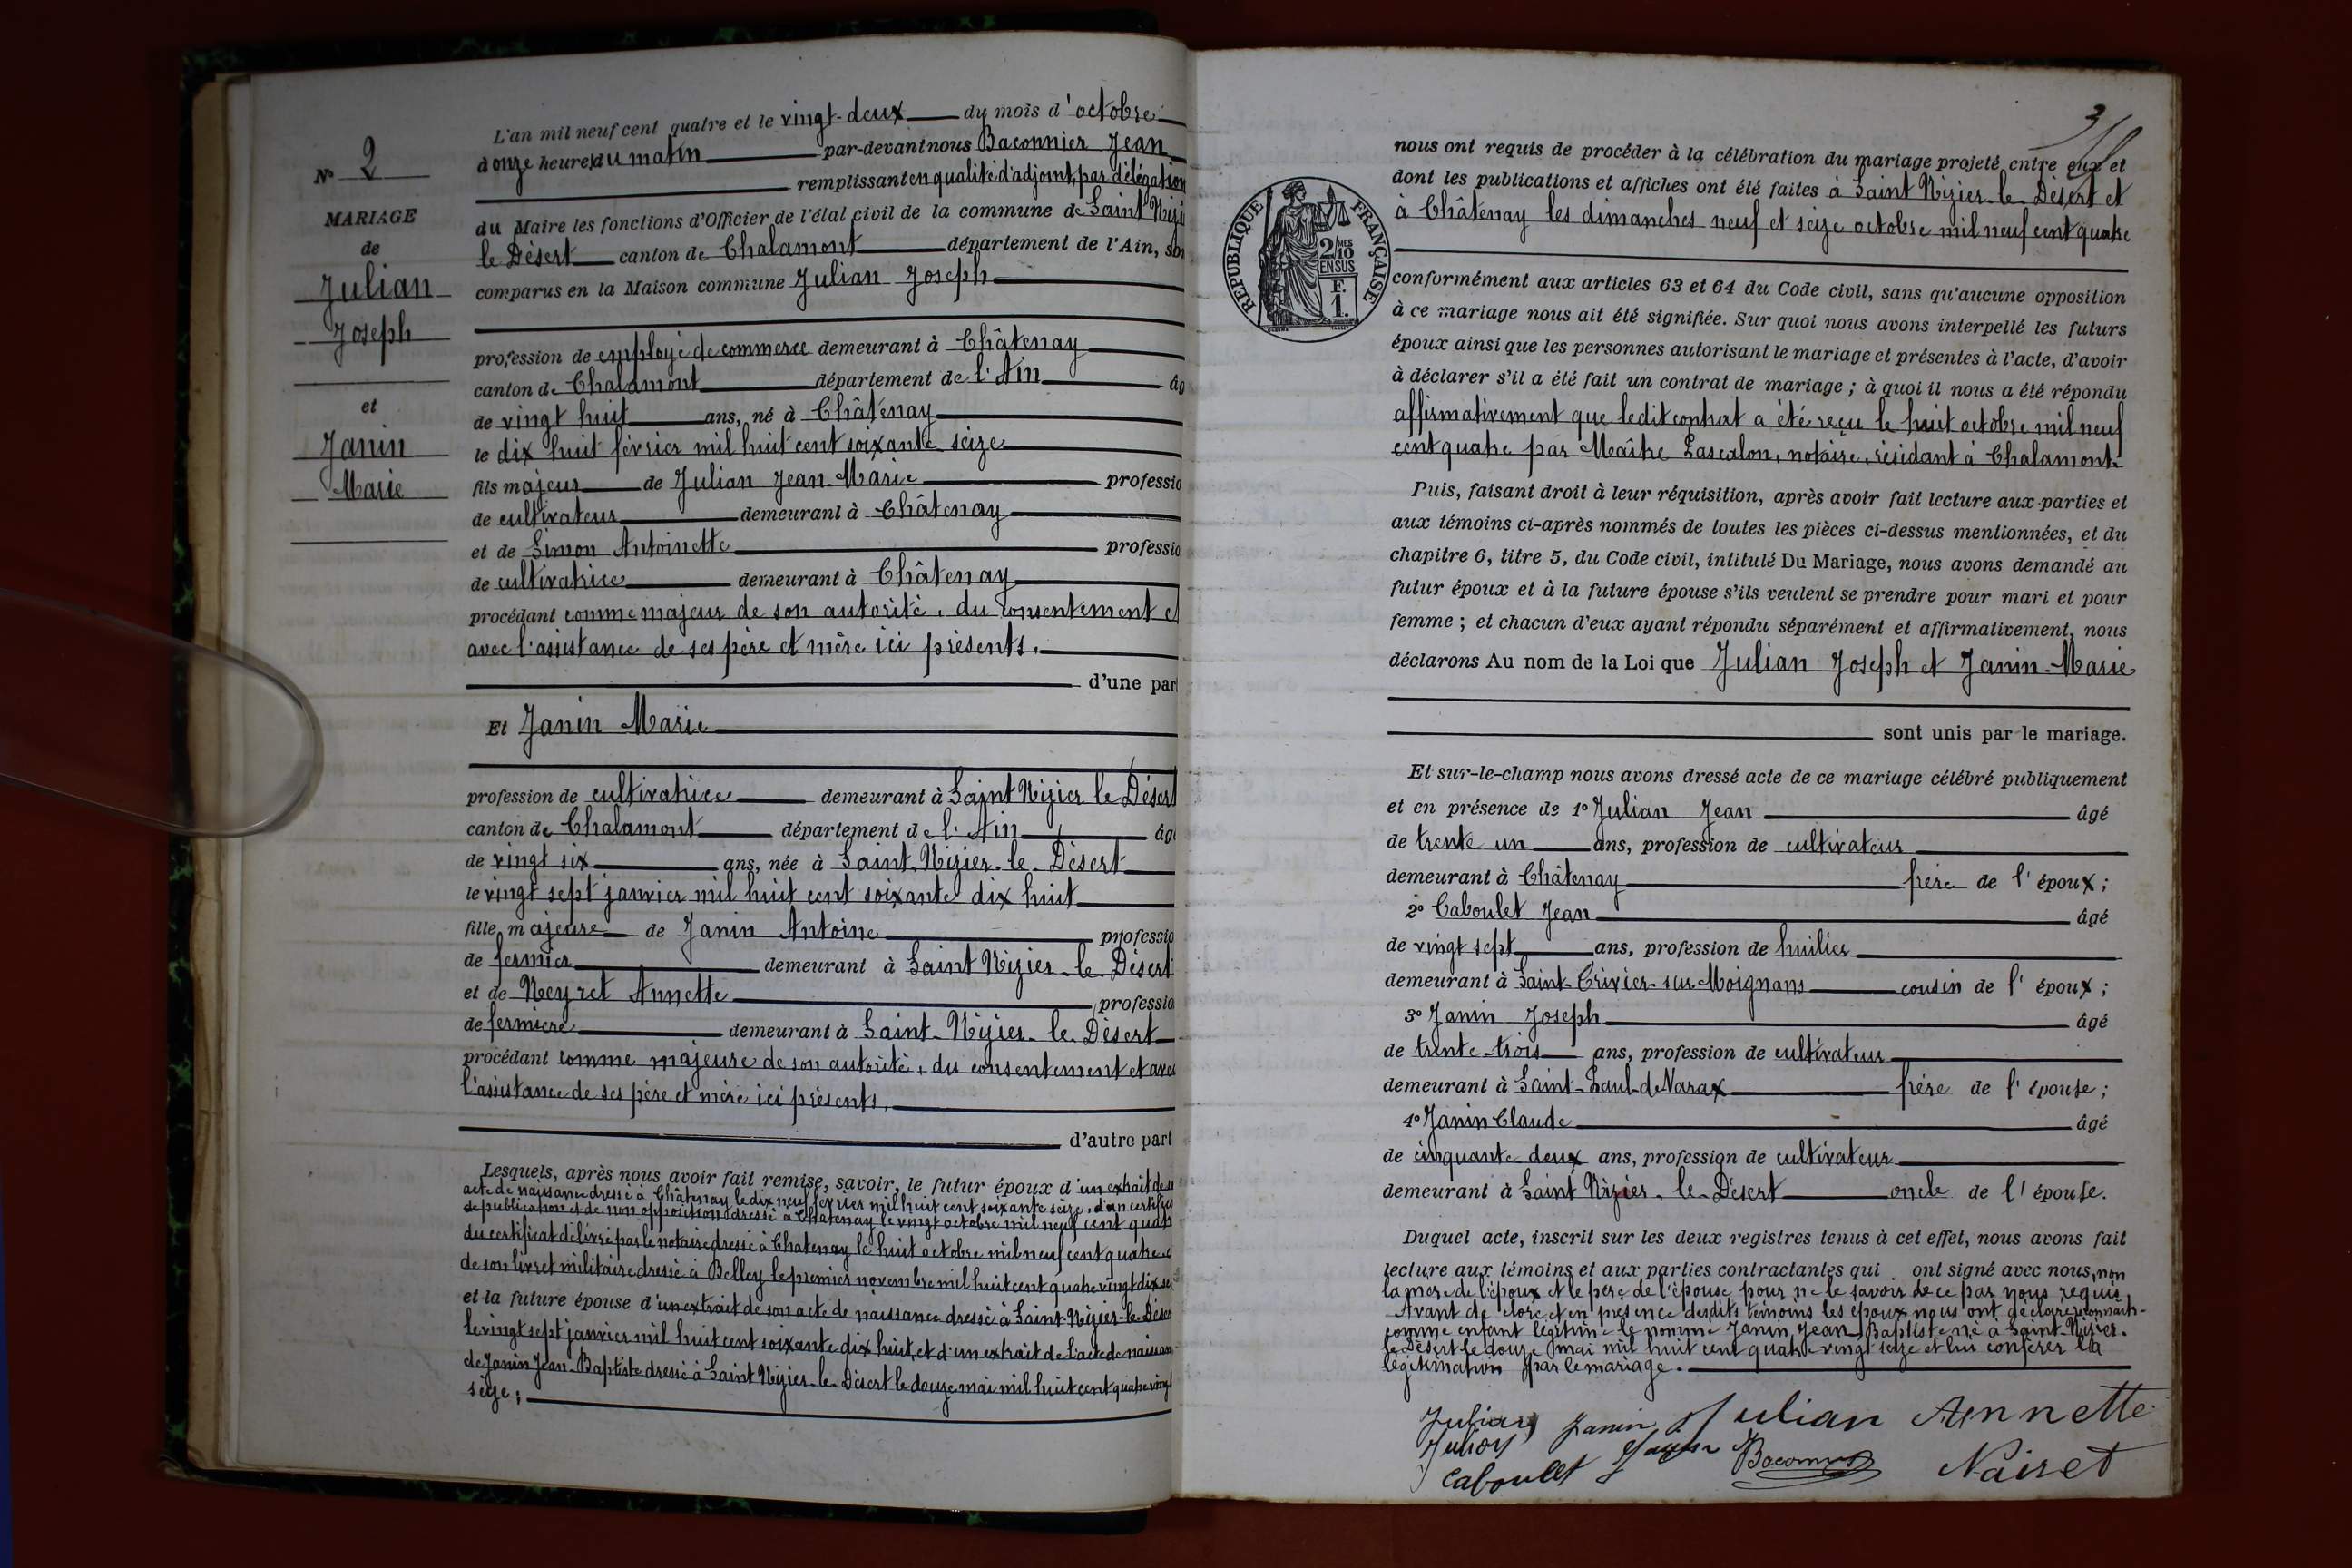 N° 2
MARIAGE
de
Julian
Joseph
et
Janin
Marie
L'an mil neuf cent quatre et le vingt-deux du mois d'octobre
à onze heures du matin par-devant nous Baconnier Jean
remplissant en qualité d'adjoint, par délégation
du Maire les fonctions d'Officier de l'état civil de la commune de Saint Nizi
le Désert canton de Chalamont département de l'Ain, son
comparus en la Maison commune Julian Joseph
profession de employé de commerce demeurant à Châtenay
canton de Chalamont département de l'Ain âg
de vingt huit ans, né à Châtenay
le dix huit février mil huit cent soixante seize
fils majeur de Julian Jean-Marie professio
de cultivateur demeurant à Châtenay
et de Simon Antoinette professio
de cultivatrice demeurant à Châtenay
procédant comme majeur de son autorité, du consentement et
avec l'assistance de ses père et mère ici présents.
d'une part
Et Janin Marie
profession de cultivatrice demeurant à Saint Nizier le Désert
canton de Chalamont département de l'Ain âgé
de vingt six ans, née à Saint-Nizier-le-Désert
le vingt sept janvier mil huit cent soixante dix huit
fille majeure de Janin Antoine professio
de fermier demeurant à Saint Nizier-le-Désert
et de Neyret Annette professio
de fermière demeurant à Saint-Nizier-le-Désert
procédant comme majeure de son autorité, du consentement et avec
l'assistance de ses père et mère ici présents.
d'autre part
Lesquels, après nous avoir fait remise, savoir, le futur époux d'un extrait de s
acte de naissance dressé à Châtenay le dix neuf février mil huit cent soixante seize, d'un certificat
de publication et de non opposition dressé à Châtenay le vingt octobre mil neuf cent quatr
du certificat délivré par le notaire dressé à Chatenay le huit octobre mil neuf cent quatre e
de son livret militaire dressé à Belley le premier novembre mil huit cent quatre vingt dix se
et la future épouse d'un extrait de son acte de naissance dressé à Saint-Nizier-le-Désert
le vingt sept janvier mil huit cent soixante dix huit, et d'un extrait de l'acte de naissan
de Janin Jean-Baptiste dressé à Saint Nizier-le-Désert le douze mai mil huit cent quatre vingt
seize;
3
nous ont requis de procéder à la célébration du mariage projeté entre eux et
dont les publications et affiches ont été faites à Saint Nizier-le-Désert et
à Châtenay les dimanches neuf et seize octobre mil neuf cent quatre
RÉPUBLIQUE FRANÇAISE
2/10 MES
EN SUS
F.
1.
conformément aux articles 63 et 64 du Code civil, sans qu'aucune opposition
à ce mariage nous ait été signifiée. Sur quoi nous avons interpellé les futurs
époux ainsi que les personnes autorisant le mariage et présentes à l'acte, d'avoir
à déclarer s'il a été fait un contrat de mariage; à quoi il nous a été répondu
affirmativement que ledit contrat a été reçu le huit octobre mil neuf
cent quatre par Maître Lascalon, notaire, résidant à Chalamont.
Puis, faisant droit à leur réquisition, après avoir fait lecture aux parties et
aux témoins ci-après nommés de toutes les pièces ci-dessus mentionnées, et du
chapitre 6, titre 5, du Code civil, intitulé Du Mariage, nous avons demandé au
futur époux et à la future épouse s'ils veulent se prendre pour mari et pour
femme; et chacun d'eux ayant répondu séparément et affirmativement, nous
déclarons Au nom de la Loi que Julian Joseph et Janin-Marie
sont unis par le mariage.
Et sur-le-champ nous avons dressé acte de ce mariage célébré publiquement
et en présence de 1° Julian Jean âgé
de trente un ans, profession de cultivateur
demeurant à Châtenay frère de l'époux;
2° Caboulet Jean âgé
de vingt sept ans, profession de huilier
demeurant à Saint-Trivier-sur-Moignans cousin de l'époux;
3° Janin Joseph âgé
de trente-trois ans, profession de cultivateur
demeurant à Saint-Paul-de-Varax frère de l'épouse;
4° Janin Claude âgé
de cinquante deux ans, profession de cultivateur
demeurant à Saint Nizier-le-Désert oncle de l'épouse.
Duquel acte, inscrit sur les deux registres tenus à cet effet, nous avons fait
lecture aux témoins et aux parties contractantes qui ont signé avec nous, non
la mère de l'époux et le père de l'épouse pour ne le savoir de ce par nous requis
Avant de clore et en présence desdits témoins les époux nous ont déclaré reconnaitre
comme enfant légitime le nommé Janin Jean Baptiste né à Saint-Nizier-
le-Désert le douze mai mil huit cent quatre vingt seize et lui conférer la
légitimation par le mariage.
Julian Janin Julian Annette
Julian Janin Baconnier Nairet
Caboulet